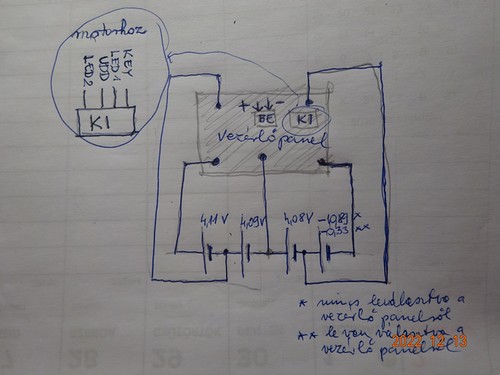 motorhoz
KEY
LED1
VDD
LED2
KI
+ -
BE
KI
vezérlőpanel
4,11V
4,09V
4,08V
-0,89 *
-0,33 **
* nincs leválasztva a
vezérlő panelről
** le van választva a
vezérlő panelről
2022 12 13